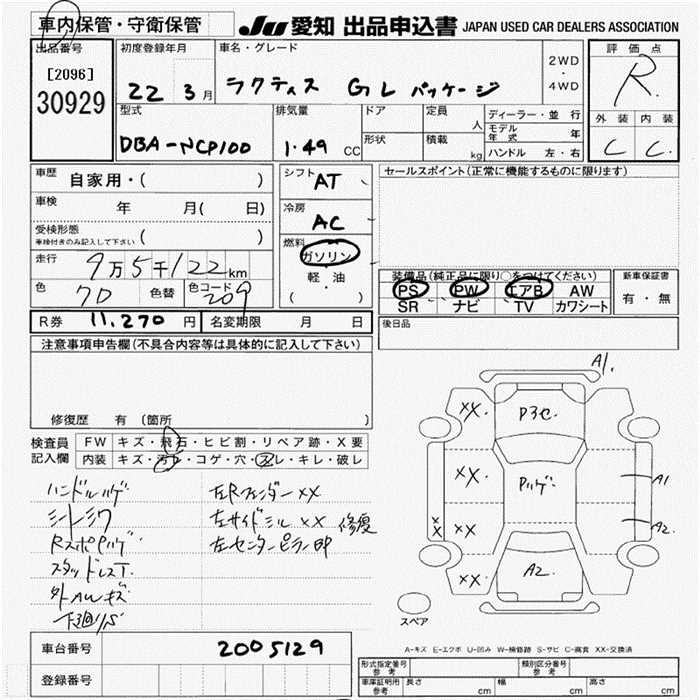 車内保管・守衛保管
JU 愛知 出品申込書 JAPAN USED CAR DEALERS ASSOCIATION
出品番号
[2096]
30929
初度登録年月
22 3月
車名・グレード
ラクティス GLパッケージ
2WD
・
4WD
評価点
R
外装 内装
C C
型式
DBA-NCP100
排気量
1.49 CC
ドア
形状
定員 人
積載 kg
ディーラー・並行
モデル年式 年
ハンドル 左・右
車歴 自家用・( )
車検 年 月( 日)
受検形態
車検付きのみ記入して下さい ( )
走行 9万5千122km
色 7D 色替 色コード 209
シフト AT
冷房 AC
燃料 ガソリン
軽・油
( ・ )
セールスポイント(正常に機能するものに限ります)
装備品(純正品に限り○をつけてください)
PS PW エアB AW
SR ナビ TV カワシート
新車保証書
有・無
R券 11,270 円 名変期限 月 日
後日品
注意事項申告欄(不具合内容等は具体的に記入して下さい)
修復歴 有 (箇所 )
検査員記入欄
FW キズ・飛石・ヒビ割・リペア跡・X要
内装 キズ・汚レ・コゲ・穴・スレ・キレ・破レ
ハンドルハゲ
シートシワ
スタッドレスT.
外AWキズ
下廻り
左Rフェンダー XX
左サイドシル XX 修復
左センターピラー
A1.
XX.
XX.
XX.
XX.
XX
A1
A2.
A2.
スペア
A-キズ E-エクボ U-凹み W-補修跡 S-サビ C-腐食 XX-交換済
車台番号 2005129
登録番号
形式指定番号 参考
類別区分番号 参考
車庫証明用 参考 長さ cm 幅 cm 高さ cm